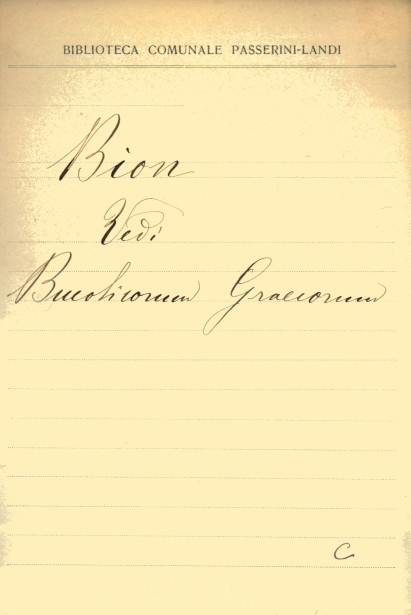 BIBLIOTECA COMUNALE PASSERINI-LANDI
Bion
Vedi
Bucolicorum Graecorum
C